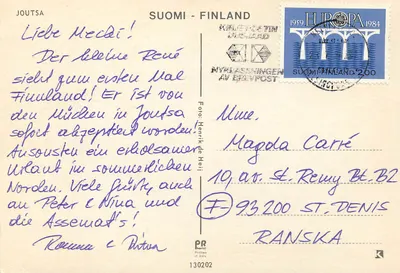 JOUTSA
SUOMI - FINLAND
1919 EUROPA 1984
SUOMI FINLAND 2,00
KIRJEPOSTIN
MYRKASSNINGEN
AV BREVPOST
Liebe Mecki!
Der kleine René
sieht zum ersten Mal
Finnland! Er ist von
den Mücken in Joutsa
sofort akzeptiert worden!
Ansonsten ein erholsamer
Urlaub im sommerlichen
Norden. Viele Grüße, auch
an Peter & Nina und
die Assemat's!
Foto: Henrik de Heij
Mme.
Magda Carré
10, av. St. Remy Bt. B2
F 93200 ST. DENIS
RANSKA
PR
130202
K